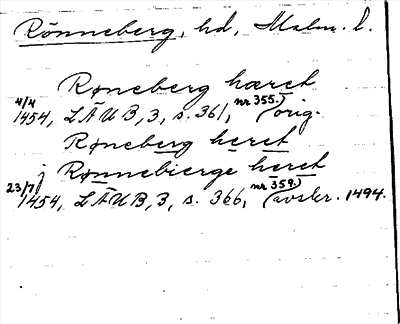 Rönneberg, hd, Malm. l.
Røneberg hæret
4/4 1454, LÄUB, 3, s. 361, nr 355.) orig.
Røneberg heret
j Rønnebierge heret
23/7 1454, LÄUB, 3, s. 366, nr 359.) avskr. 1494.